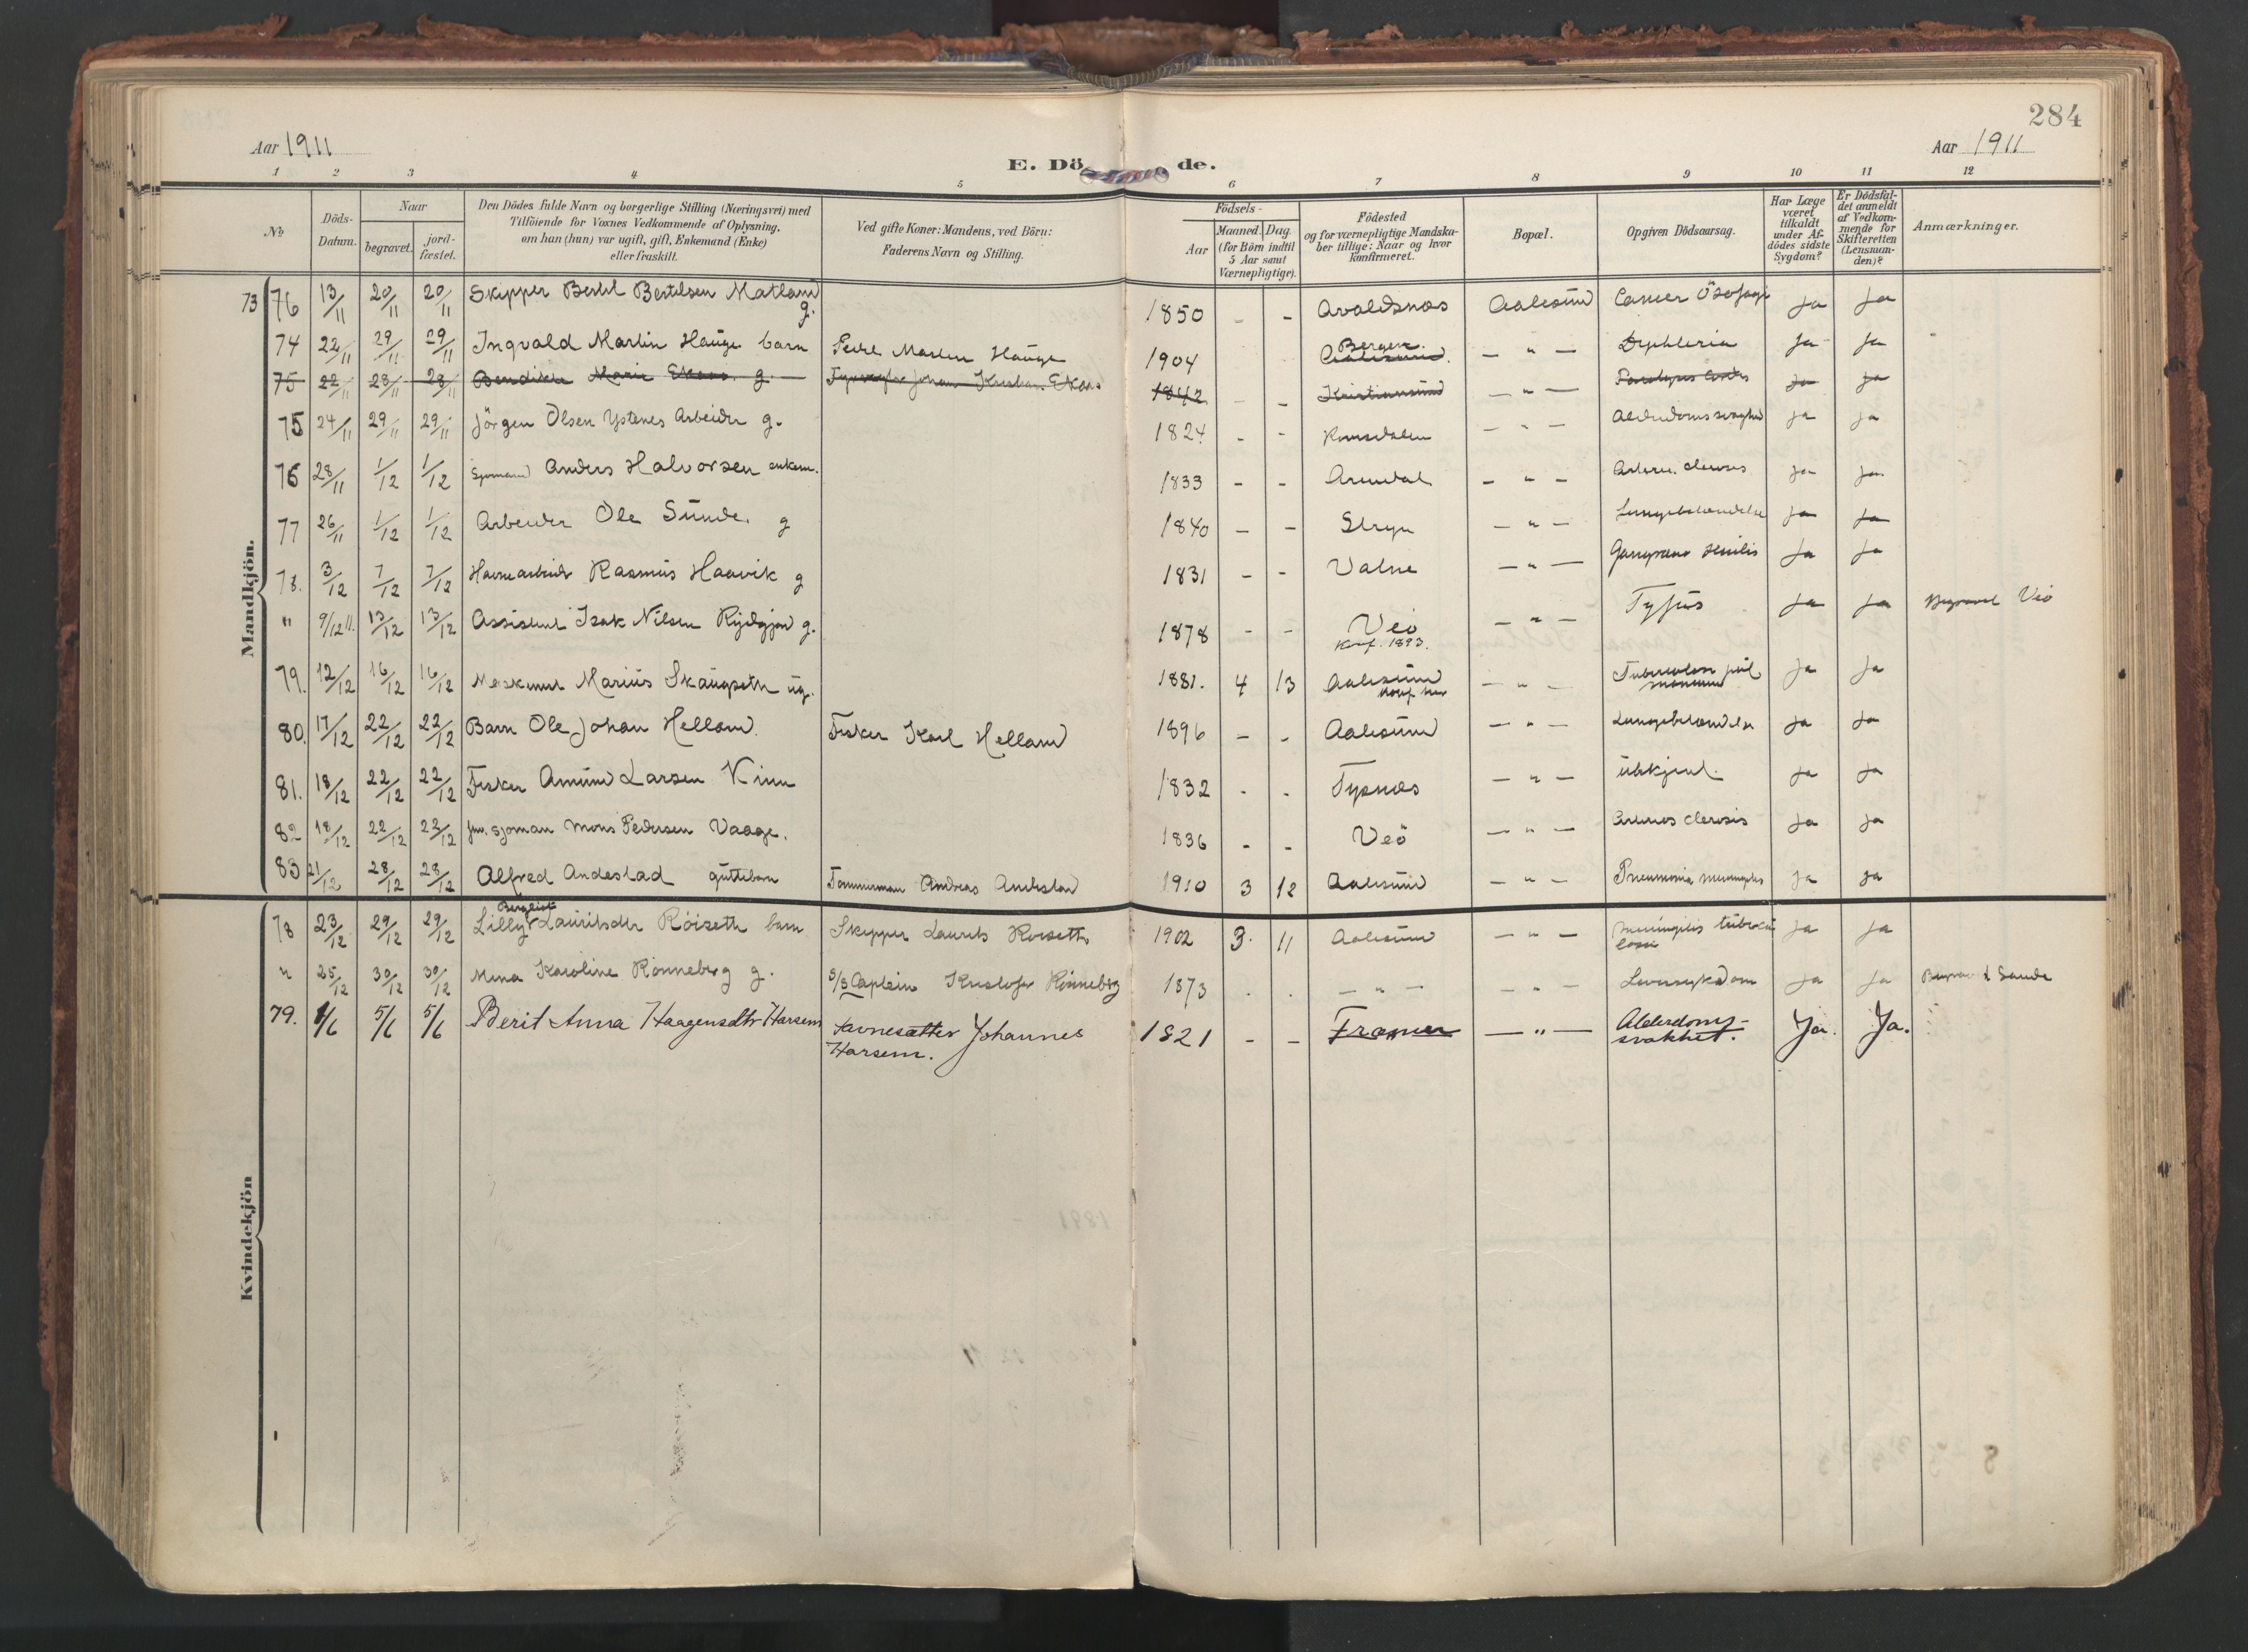 284
Aar 1911
Aar 1911
E. Dö de.
1 2 3 4 5 6 7 8 9 10 11 12
№
Döds-Datum.
Naar
begravet.
jord-fæstet.
Den Dödes fulde Navn og borgerlige Stilling (Næringsvei) med
Tilföiende for Voxnes Vedkommende af Oplysning,
om han (hun) var ugift, gift, Enkemand (Enke)
eller fraskilt.
Ved gifte Koner: Mandens, ved Börn:
Faderens Navn og Stilling.
Födsels-
Aar
Maaned. Dag.
(for Börn indtil
5 Aar samt
Værnepligtige).
Födested
og for værnepligtige Mandska-
ber tillige: Naar og hvor
Konfirmeret.
Bopæl.
Opgiven Dödsaarsag.
Har Læge
været
tilkaldt
under Af-
dödes sidste
Sygdom?
Er Dödsfal-
det anmeldt
af Vedkom-
mende for
Skifteretten
(Lensman-
den)?
Anmærkninger.
Mandkjön.
73 76 13/11 20/11 20/11 Skipper Bertil Bertelsen Matland g. 1850 - - Avaldsnes Aalesund Cancer Ösofagi Ja Ja
74 22/11 29/11 29/11 Ingvald Martin Hauge barn Peder Martin Hauge 1904 Bergen. Aalesund. - " - Dyphteria Ja Ja
75 22/11 28/11 28/11 Bendikte Marie Ekaas. g. Johan Kristian Ekaas 1842 - - Kristiansund - " - Paralysis Ja Ja
75 24/11 29/11 29/11 Jörgen Olsen Ystenes Arbeider g. 1824 - - Romsdalen - " - Alderdomssvaghed Ja Ja
76 28/11 1/12 1/12 Sjomand Anders Halvorsen enkem. 1833 - - Arendal - " - Ja Ja
77 26/11 1/12 1/12 Arbeider Ole Sunde. g 1840 - - Stryn - " - Lungebetændelse Ja Ja
78. 3/12 7/12 7/12 Havnearbeider Rasmus Haavik g 1831 - - Valne - " - Gangræna senilis Ja Ja
" 9/12 11. 13/12 13/12 Assistent Isak Nilsen Rydgjon g. 1878 - - Veö Konf. 1893. - " - Tyfus Ja Ja Begravet Veö
79. 12/12 16/12 16/12 Marius Skaugseth ug. 1881. 4 13 Aalesund konf. her - " - Ja Ja
80. 17/12 22/12 22/12 Barn Ole Johan Helland. Fisker Karl Helland 1896 - - Aalesund - " - Lungebetændelse Ja Ja
81. 18/12 22/12 22/12 Fisker Amund Larsen Kinn 1832 - - Tysnæs - " - ubkjent. Ja Ja
82 18/12 22/12 22/12 sjoman Mons Pedersen Vaage. 1836 - - Veö - " - Ja Ja
83 21/12 28/12 28/12 Alfred Andestad guttebarn Tömmerman Andreas Andestad 1910 3 12 Aalesund - " - Pneumonia Meningitis Ja Ja
Kvindekjön
78 23/12 29/12 29/12 Lilly Bergliot Lauritsdtr Röiseth barn Skipper Laurits Roiseth 1902 3. 11 Aalesund - " - Meningitis tuberku losa Ja Ja
" 25/12 30/12 30/12 Mina Karoline Rönneberg g. S/S Captein Kristofer Rönneberg 1873 . . - " - - " - Leversykdom Ja Ja Begravet Sande
79. 1/6 5/6 5/6 Berit Anna Haagensdtr Harsem Johannes Harsem. 1821 - - Frænen - " - Alderdoms-svakhet. Ja. Ja.